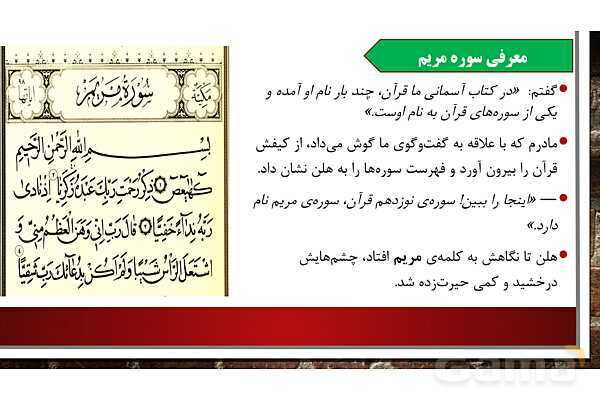 معرفی سوره مریم
گفتم: «در کتاب آسمانی ما قرآن، چند بار نام او آمده و
یکی از سوره‌های قرآن به نام اوست.»
مادرم که با علاقه به گفت‌وگوی ما گوش می‌داد، از کیفش
قرآن را بیرون آورد و فهرست سوره‌ها را به هلن نشان داد.
— «اینجا را ببین! سوره‌ی نوزدهم قرآن، سوره‌ی مریم نام
دارد.»
هلن تا نگاهش به کلمه‌ی مریم افتاد، چشم‌هایش
درخشید و کمی حیرت‌زده شد.
مكية
سورة مريم
آياتها ٩٨
بسم الله الرحمن الرحيم
كهيعص ١ ذكر رحمت ربك عبده زكريا ٢ اذ نادى
ربه نداء خفيا ٣ قال رب اني وهن العظم مني و
اشتعل الرأس شيبا ولم اكن بدعائك رب شقيا ٤
Gama